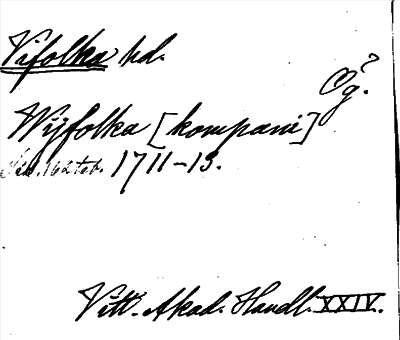 Vifolka hd.
Ög?
Wijfolka [kompani]
1711-13.
Vitt. Akad. Handl. XXIV.